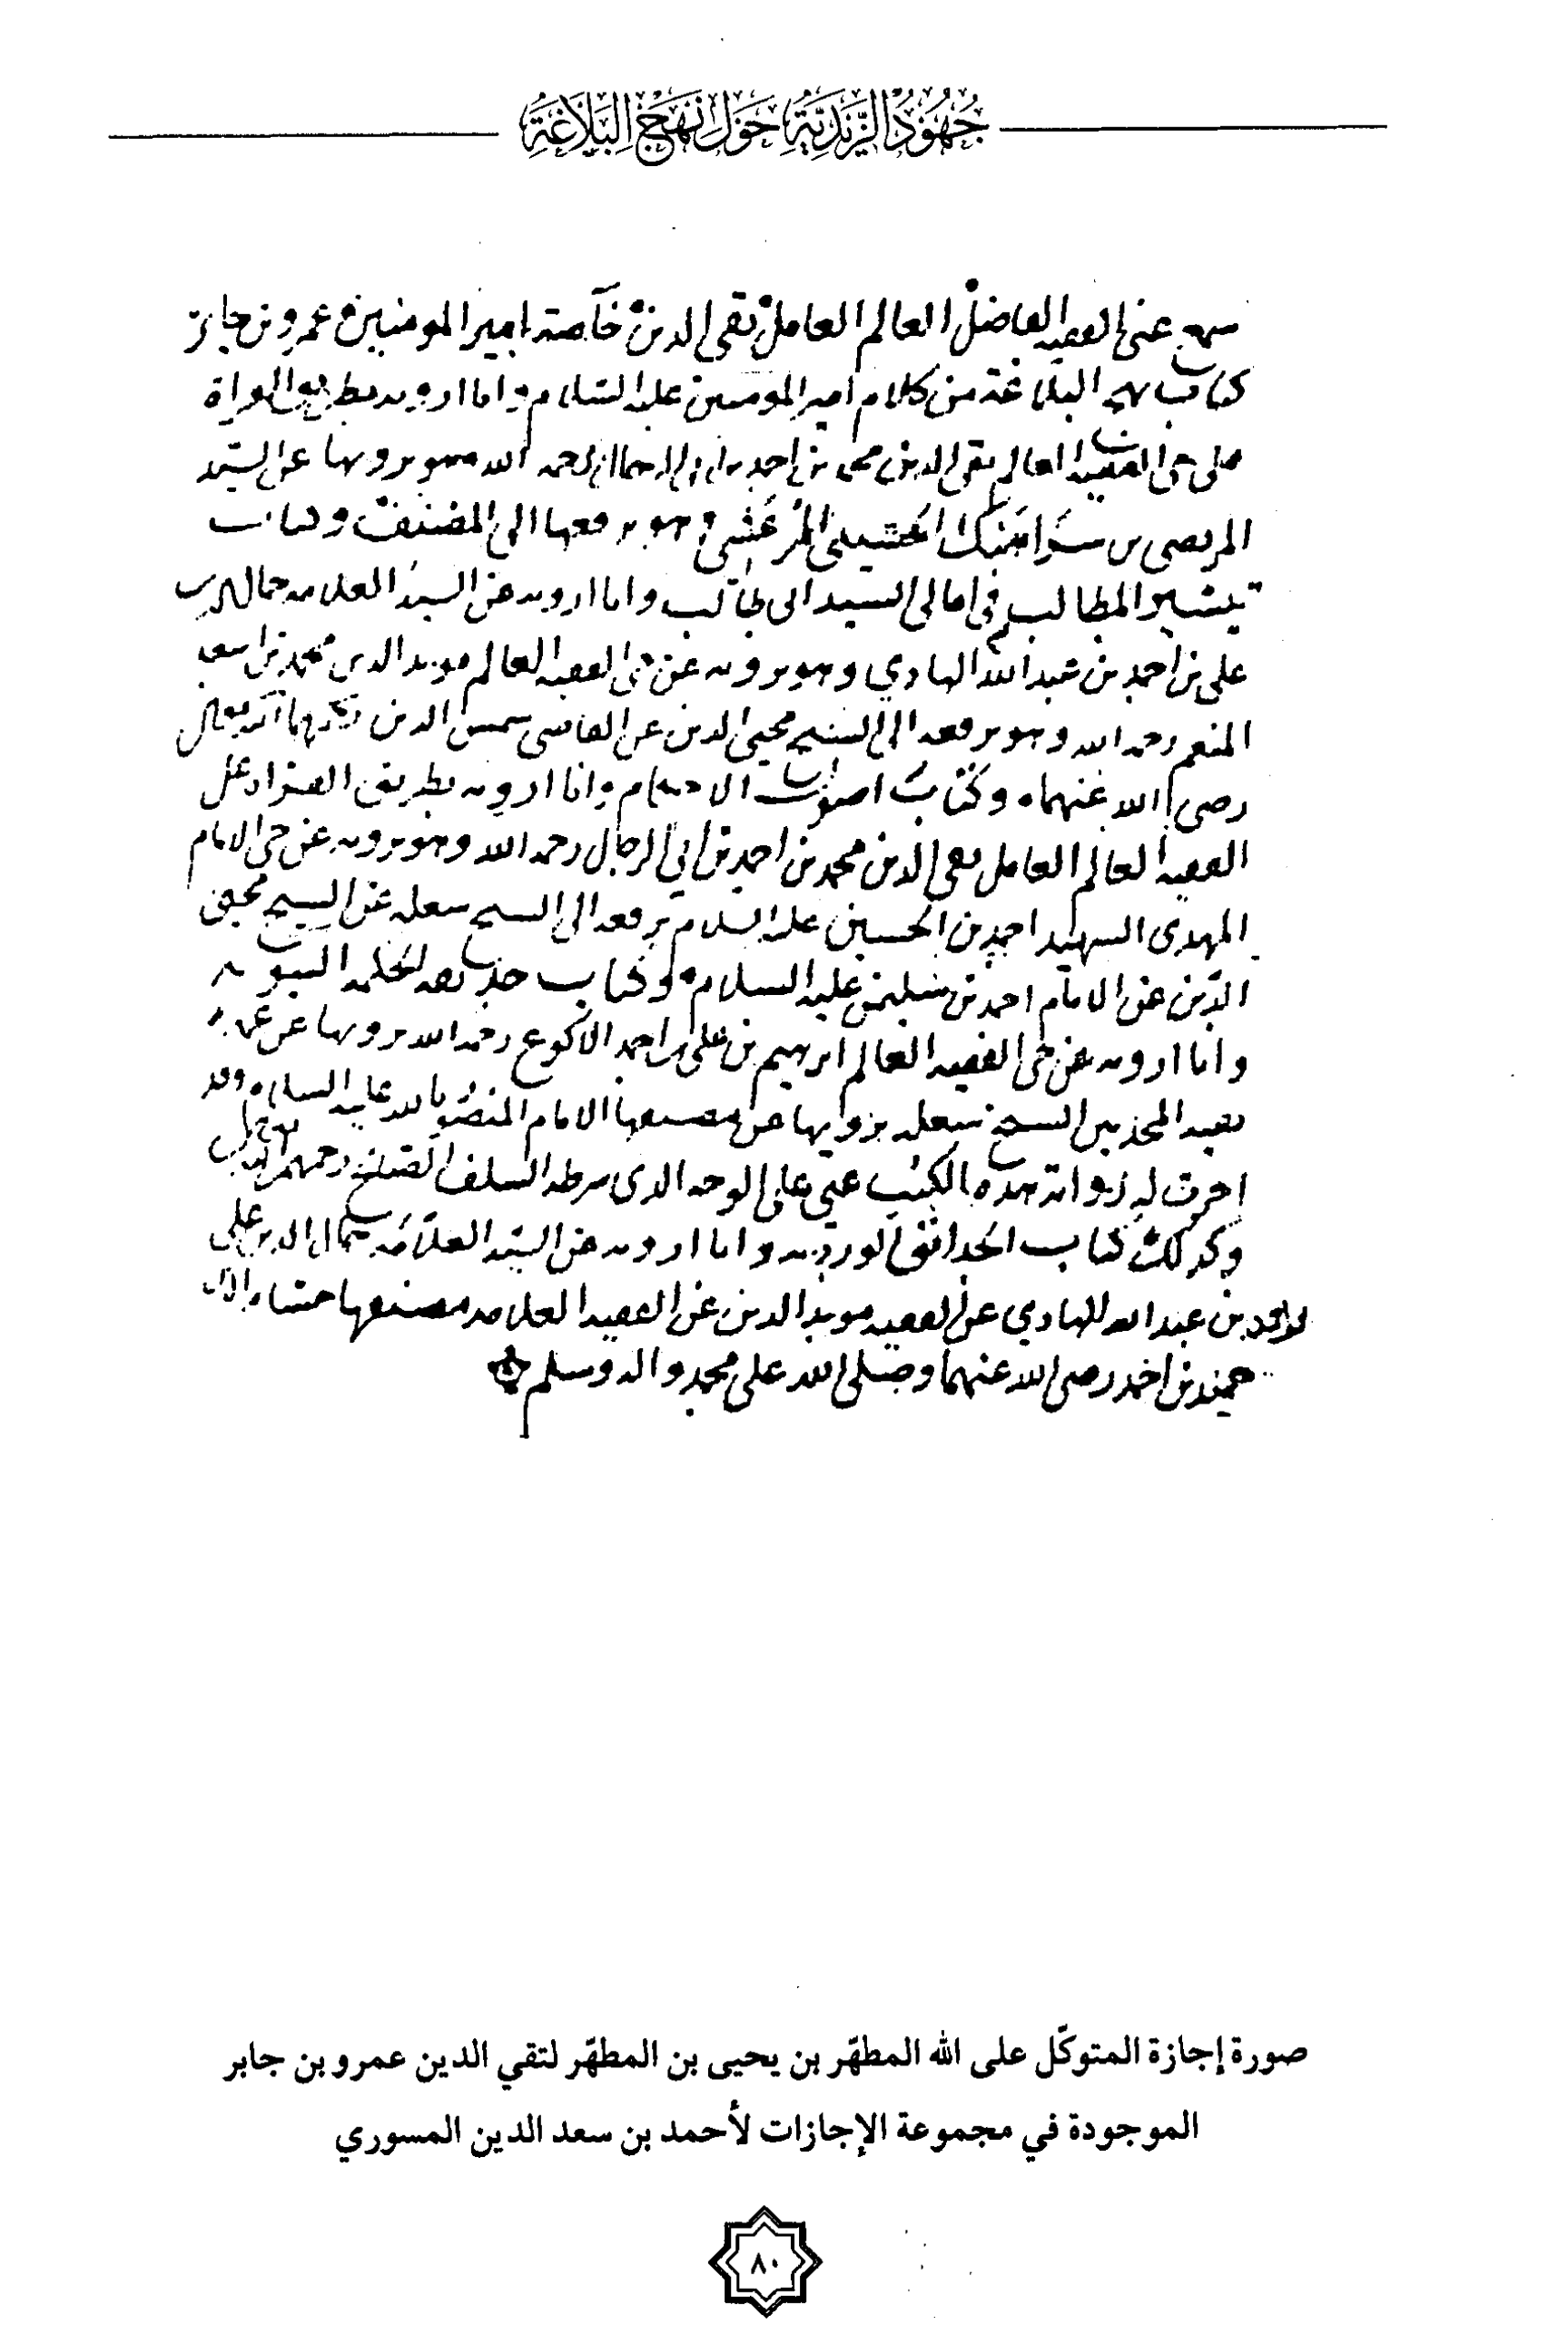 جهود الزيدية حول نهج البلاغة
سمع عني الفقيه الفاضل العالم العامل تقي الدين خاصة امير المومنين عمرو بن جابر
كتاب نهج البلاغة من كلام امير المومنين عليه السلام وانا ارويه بطريق القراة
على حي الفقيه العالم تقي الدين محمد بن احمد بن ابي الرجال رحمه الله وهو يرويها عن السيد
المرتضى بن سراهنك الحسيني المرعشي وهو يرفعها الى المصنف وكتاب
تيسير المطالب في امالي السيد ابي طالب وانا ارويه عن السيد العلامه جمال الدين
علي بن احمد بن عبد الله الهادي وهو يرويه عن حي الفقيه العالم مويد الدين محمد بن اسعد
المنعم رحمه الله وهو يرفعه الى الشيخ محيي الدين عن القاضي شمس الدين تعالى
رضي الله عنهما وكتاب اصول الاحكام وانا ارويه بطريق على
الفقيه العالم العامل تقي الدين محمد بن احمد بن ابي الرجال رحمه الله وهو يرويه عن حي الامام
المهدي الشهيد احمد بن الحسين عليه السلام يرفعه الى الشيخ شعله عن الشيخ محيي
الدين عن الامام احمد بن سليمن عليه السلام وكتاب حديقه الحكمه النبويه
وانا ارويه عن حي الفقيه العالم ابرهيم بن علي بن احمد الاكوع رحمه الله يرويها عن عمه
الشيخ شعله يرويها عن مصنفها الامام المنصور بالله عليه السلام وقد
اجزت له رواية هذه الكتب عني على الوجه الذي شرطه السلف الصلح رحمهم الله
وكذلك كتاب الحدائق الورديه وانا ارويه عن السيد العلامه جمال الدين علي
بن احمد بن عبد الله الهادي عن الفقيه مويد الدين عن الفقيه العلامه مصنفها حسام الدين
حميد بن احمد رضي الله عنهما وصلى الله على محمد واله وسلم
صورة إجازة المتوكّل على الله المطهّر بن يحيى بن المطهّر لتقي الدين عمرو بن جابر
الموجودة في مجموعة الإجازات لأحمد بن سعد الدين المسوري
٨٠